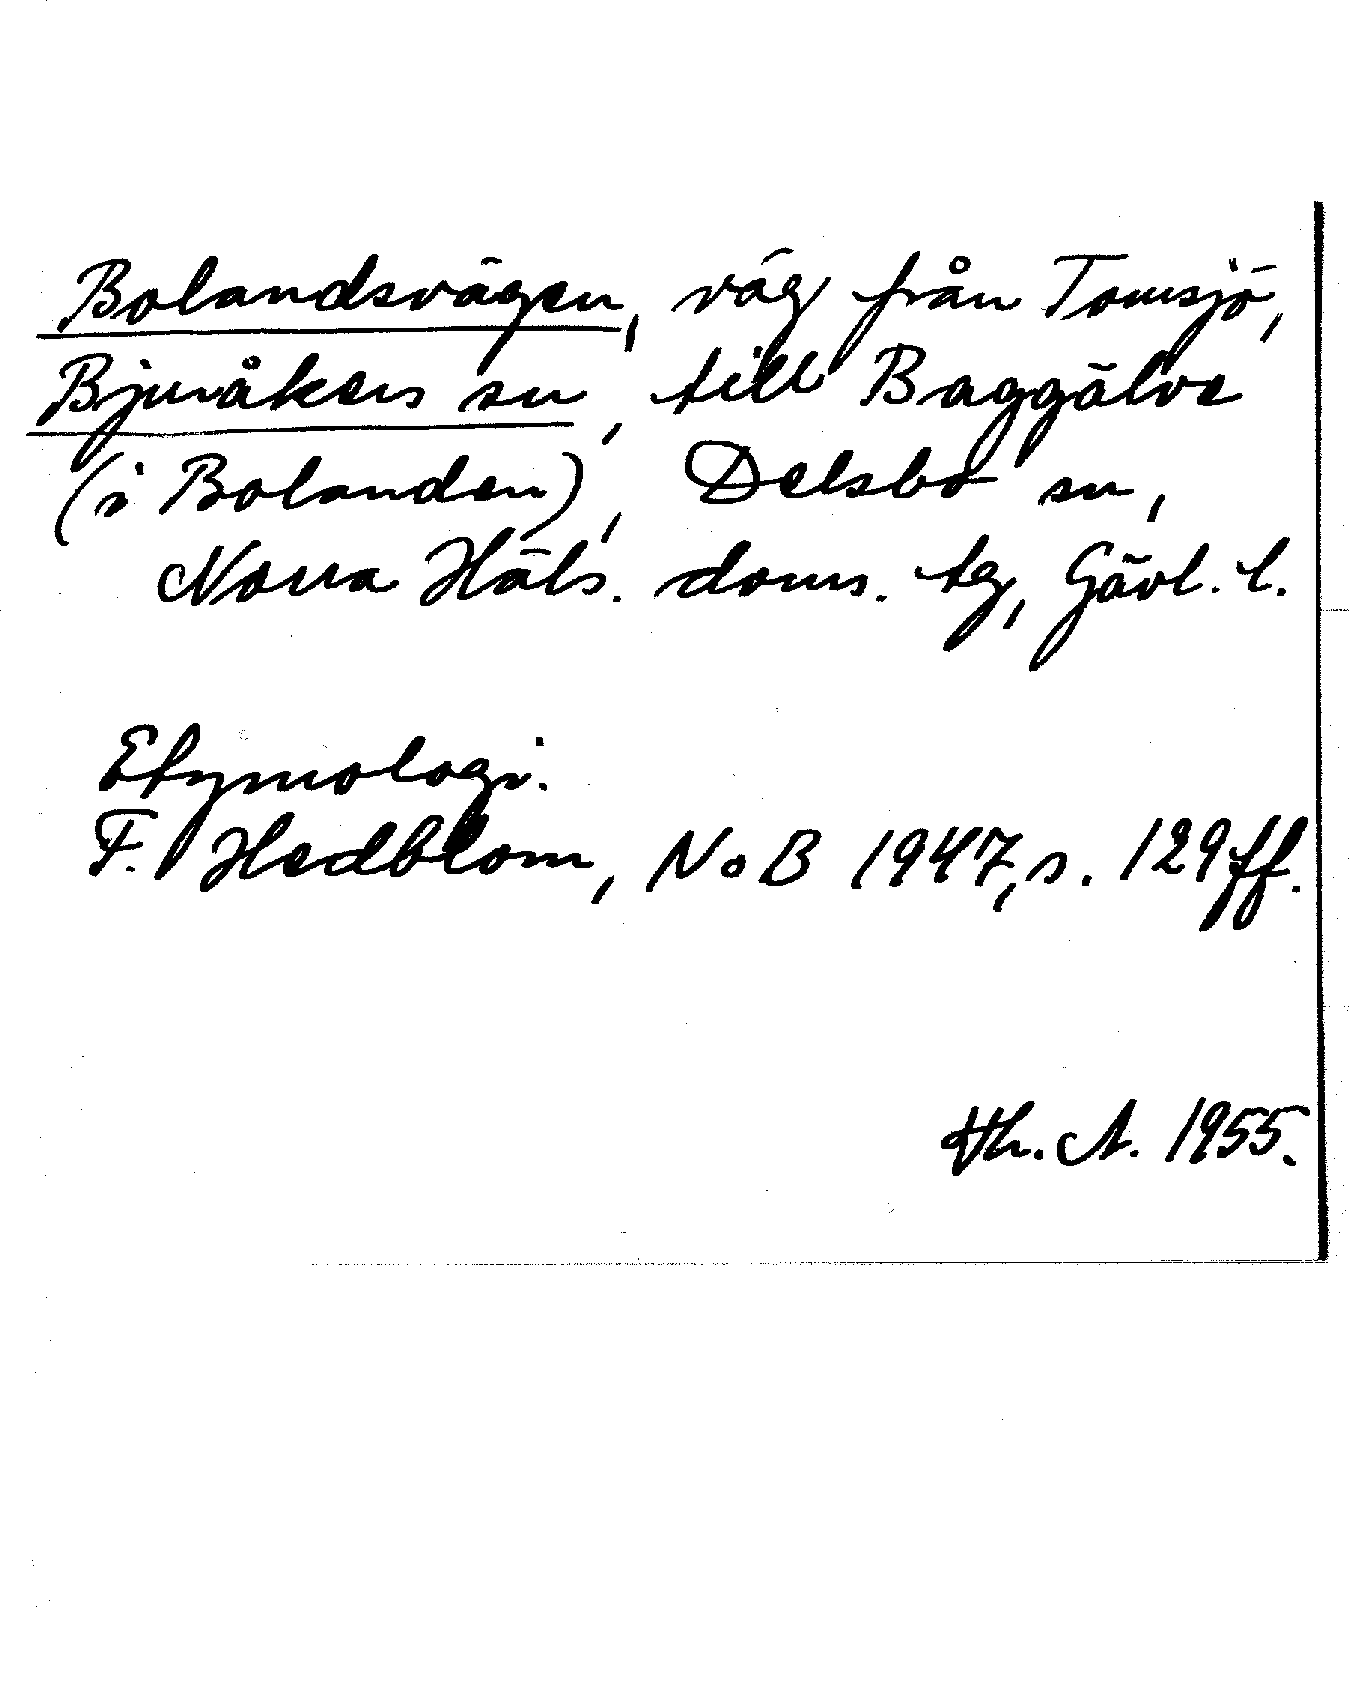 Bolandsvägen, väg från Tomsjö,
Bjuråkers sn, till Baggälve
(i Bolanden), Delsbo sn,
Norra Häls. doms. tg, Gävl. l.
Etymologi.
F. Hedblom, NoB 1947, s. 129 ff.
Hh. A. 1955.